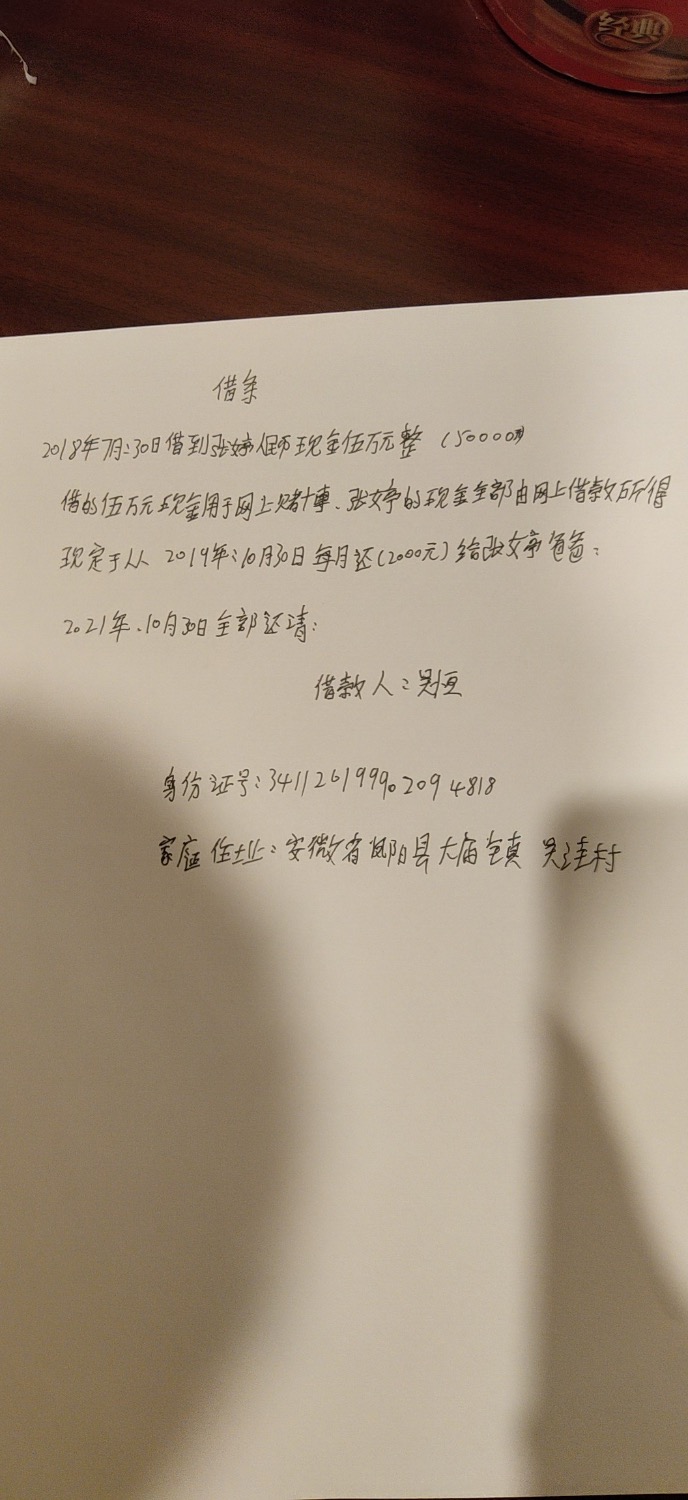 经典
借条
2018年7月:30日借到张婷人民币现金伍万元整 (50000元)
借的伍万元现金用于网上赌博、张婷的现金全部由网上借款所得
现定于从 2019年:10月30日每月还(2000元)给张婷爸爸:
2021年、10月30日全部还清:
借款人:吴恒
身份证号:341126199902094818
家庭住址:安徽省凤阳县大庙镇 吴洼村